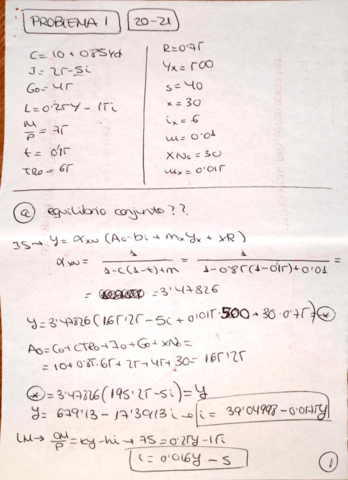 PROBLEMA 1 20-21
C = 10 + 0'85Yd
I = 25 - 5i
G₀ = 45
L = 0'25Y - 15i
M/P = 75
t = 0'15
TR₀ = 65
R = 0'75
Yx = 500
s = 40
x = 30
iₓ = 6
m = 0'01
XN₀ = 30
mₓ = 0'015
a) equilibrio conjunto??
IS → Y = αXN (A₀ - bi + mₓYₓ + xR)
αXN = 1/(1-c(1-t)+m) = 1/(1-0'85(1-0'15)+0'01) =
= 3'47826
Y = 3'47826 (165'25 - 5i + 0'015·500 + 30·0'75) = *
A₀ = C₀ + cTR₀ + I₀ + G₀ + XN₀ =
= 10 + 0'85·65 + 25 + 45 + 30 = 165'25
* = 3'47826 (195'25 - 5i) = Y
Y = 679'13 - 17'3913i → i = 39'04998 - 0'0575Y
LM → M/P = kY - hi → 75 = 0'25Y - 15i
i = 0'016Y - 5
1